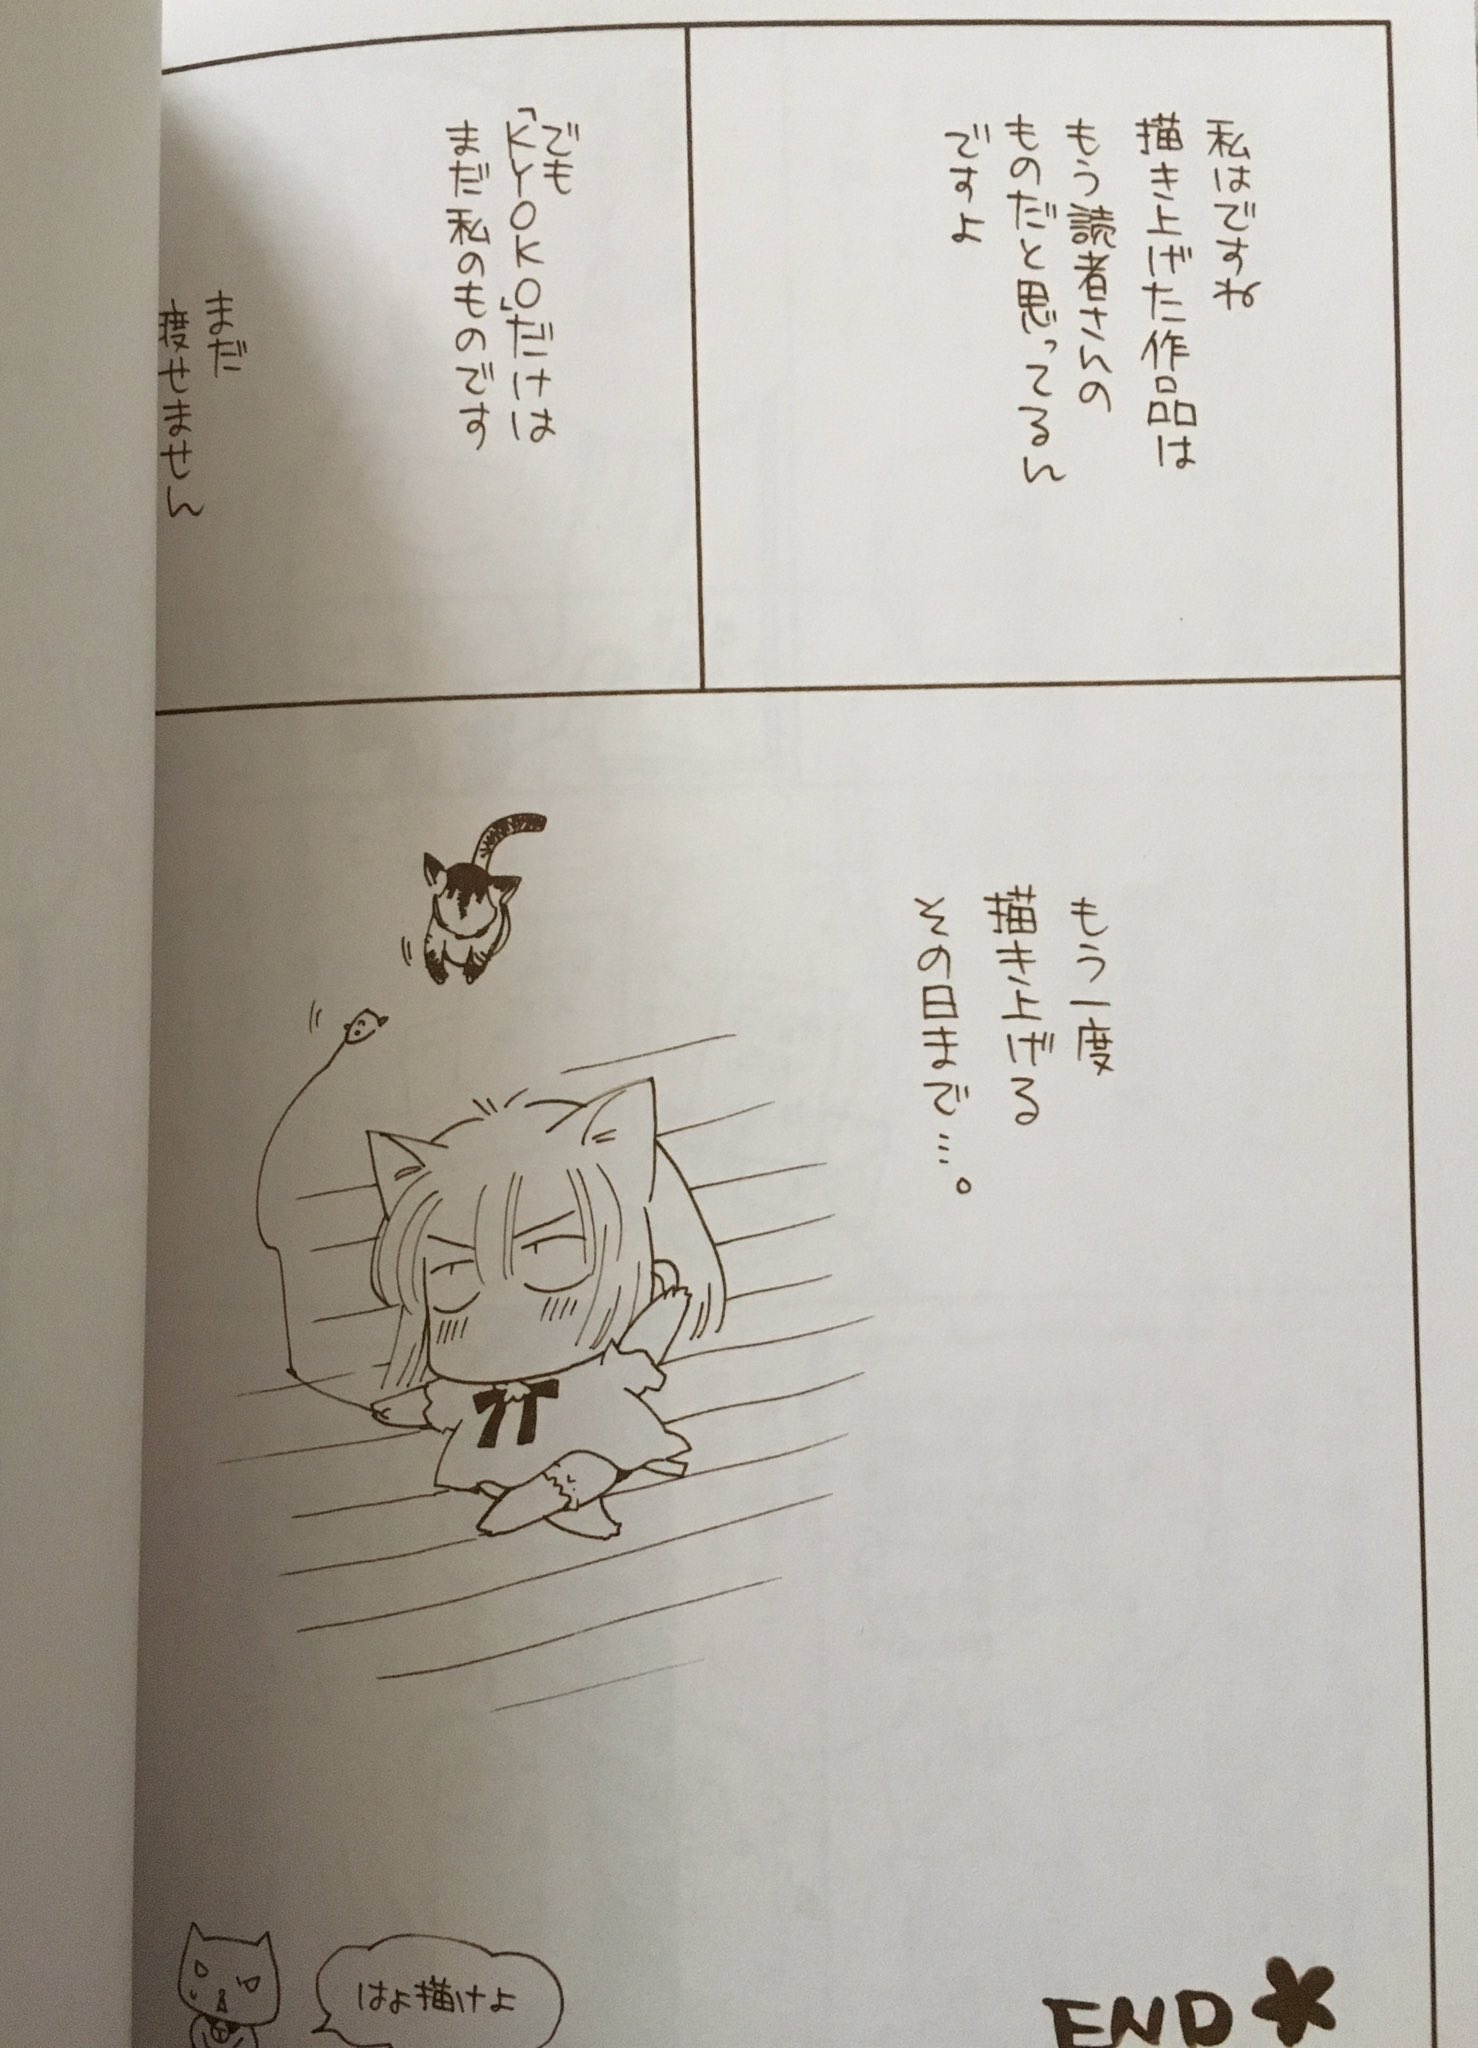 私はですね
描き上げた作品は
もう読者さんの
ものだと思ってるん
ですよ
でも
「KYOKO」だけは
まだ私のものです
まだ
渡せません
もう一度
描き上げる
その日まで…。
はよ描けよ
END